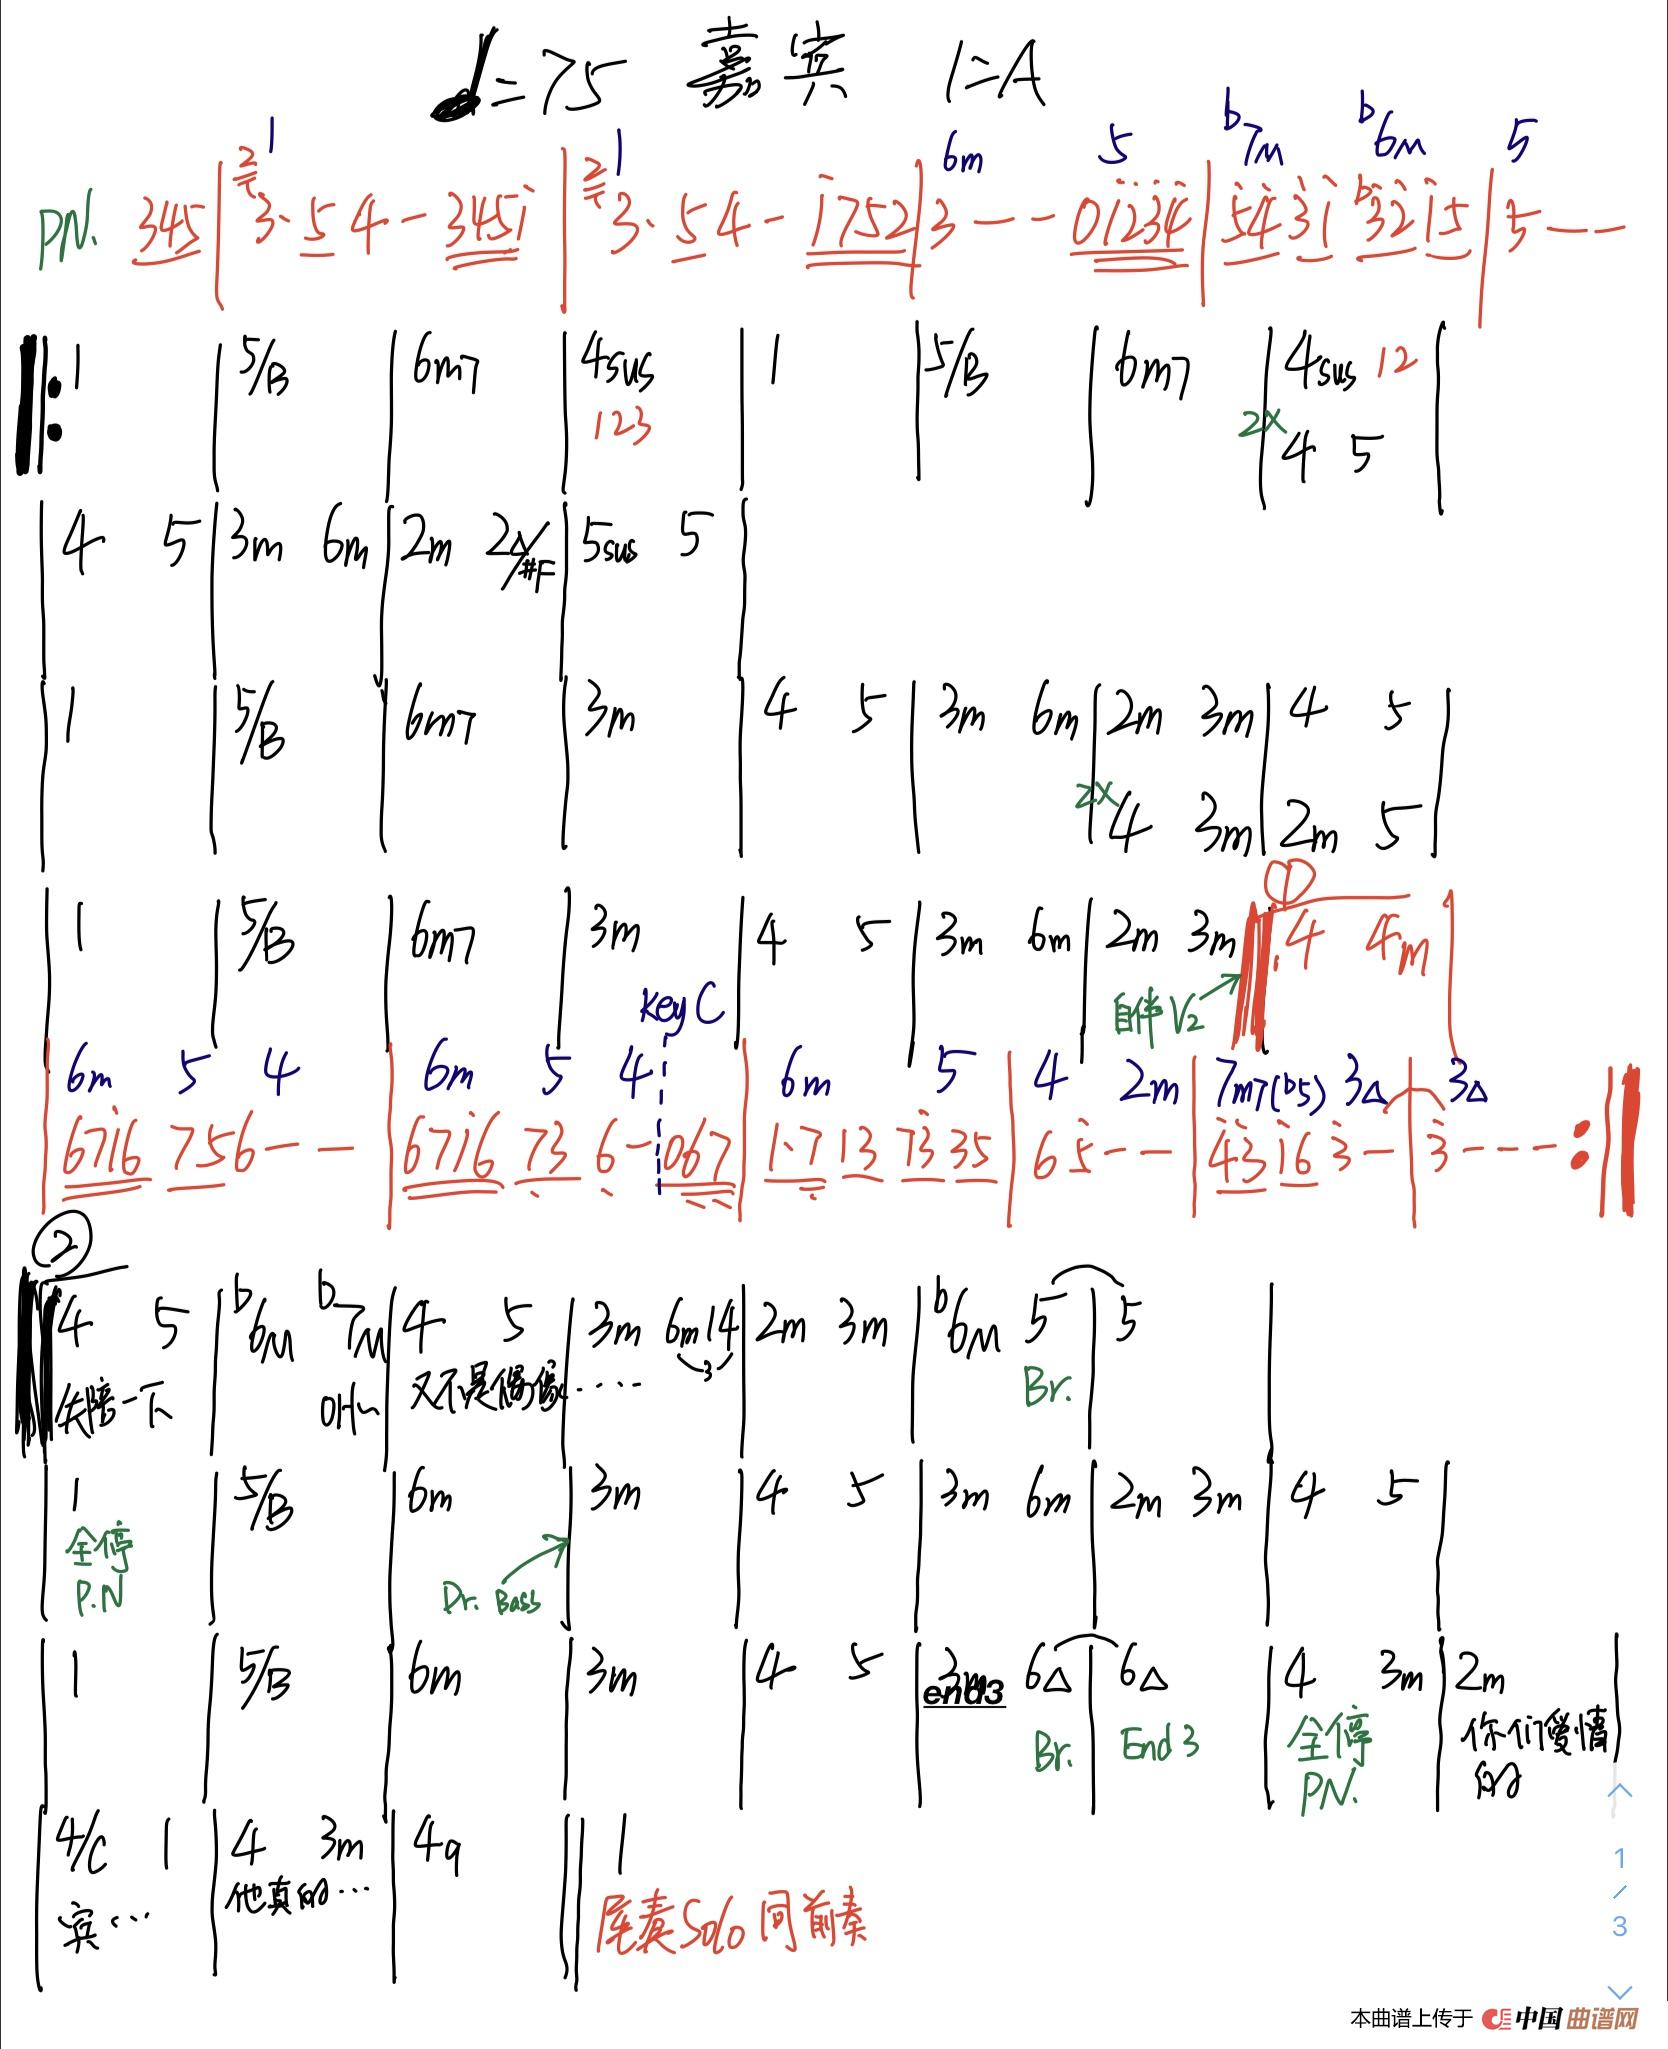 ♩=75 嘉宾 1=A
1 1 6m 5 b7M b6M 5
PN. 345 | 3· 5 4 - 345i | 3· 5 4 - i752 | 3 - - - 01234 | 54 3i b32 i5 | 5 - - -
‖: 1 | 5/B | 6m7 | 4sus | 1 | 5/B | 6m7 | 4sus 12 |
123 2X 4 5
| 4 5 | 3m 6m | 2m 2△/#F | 5sus 5 |
| 1 | 5/B | 6m7 | 3m | 4 5 | 3m 6m | 2m 3m | 4 5 |
2X 4 3m | 2m 5 |
①
| 1 | 5/B | 6m7 | 3m | 4 5 | 3m 6m | 2m 3m ‖ 4 4m |
key C 自伴V2
6m 5 4 6m 5 4 6m 5 4 2m 7m7(b5) 3△ 3△
| 67i6 756 - - | 67i6 73 6 - 067 | 1·7 13 73 35 | 6 5 - - - | 43 i6 3 - | 3 - - - - :‖
②
4 5 | b6M b7M | 4 5 | 3m 6m 14 | 2m 3m | b6M 5 | 5 |
3
失陪一下 OH~ 又不是偶像…… Br.
| 1 | 5/B | 6m | 3m | 4 5 | 3m 6m | 2m 3m | 4 5 |
全停
P.N Dr. Bass
| 1 | 5/B | 6m | 3m | 4 5 | 3m 6△ | 6△ | 4 3m | 2m |
end3
Br. End 3 全停 你们爱情
PN. 的
| 4/C 1 | 4 3m | 4q ‖ 1
宾… 他真的… 尾奏Solo同前奏
1
/
3
本曲谱上传于 中国曲谱网